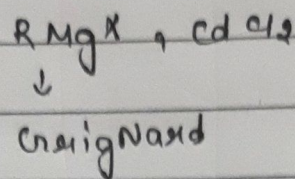 RMgX, CdCl2
↓
GreigNard